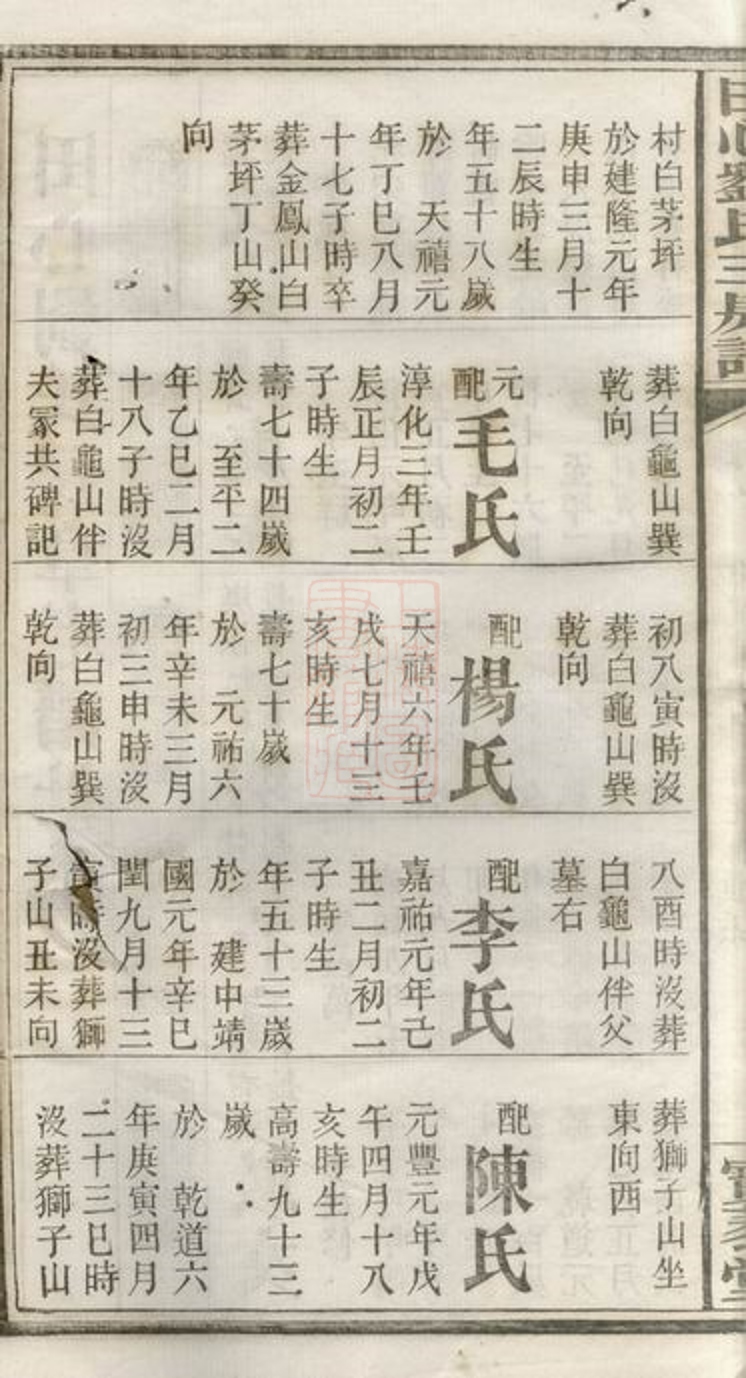 村白茅坪
於建隆元年
庚申三月十
二辰時生
年五十八歲
於 天禧元
年丁巳八月
十七子時卒
葬金鳳山白
茅坪丁山癸
向
葬白龜山巽
乾向
元配毛氏
淳化三年壬
辰正月初二
子時生
壽七十四歲
於 至平二
年乙巳二月
十八子時沒
葬白龜山伴
夫冢共碑記
初八寅時沒
葬白龜山巽
乾向
配楊氏
天禧六年壬
戌七月十三
亥時生
壽七十歲
於 元祐六
年辛未三月
初三申時沒
葬白龜山巽
乾向
八酉時沒葬
白龜山伴父
墓右
配李氏
嘉祐元年己
丑二月初二
子時生
年五十三歲
於 建中靖
國元年辛巳
閏九月十三
寅時沒葬獅
子山丑未向
葬獅子山坐
東向西
配陳氏
元豐元年戊
午四月十八
亥時生
高壽九十三
歲
於 乾道六
年庚寅四月
二十三巳時
沒葬獅子山